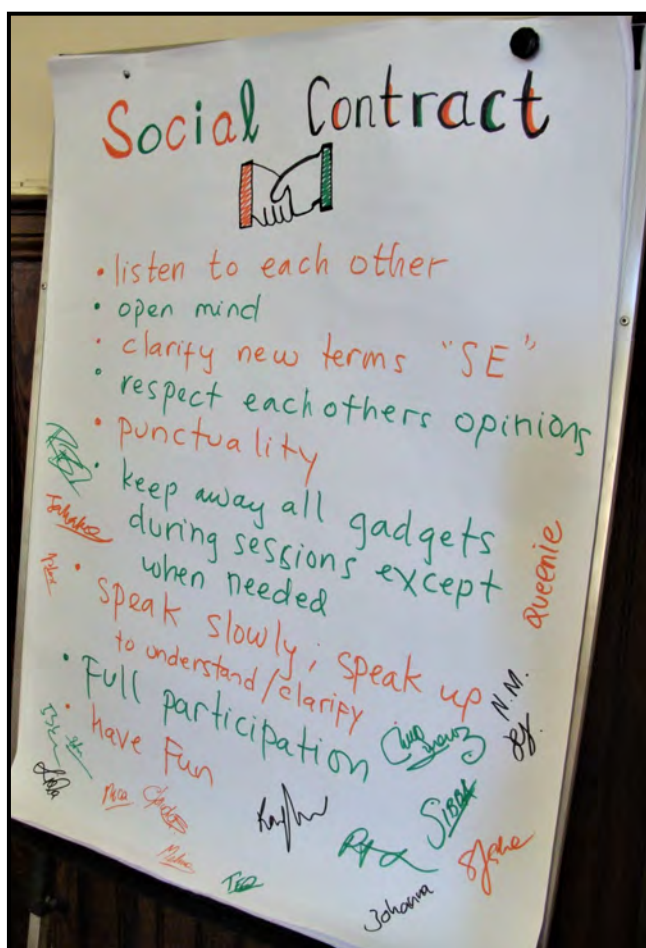 Social Contract
• listen to each other
• open mind
• clarify new terms "SE"
• respect eachothers opinions
• punctuality
• keep away all gadgets
during sessions except
when needed
• speak slowly; speak up
to understand/clarify
• Full participation
• have Fun
Queenie
N.M.
SiBBA
Johanna